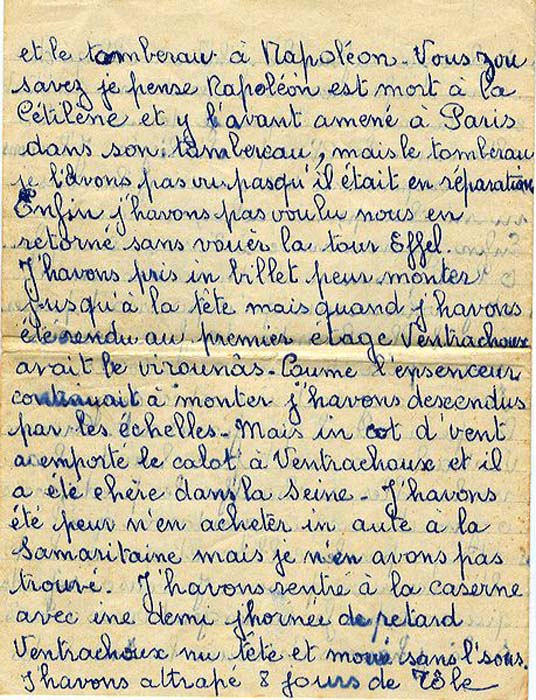 et le tomberau à Napoléon. Vous zou
savez je pense Napoléon est mort à la
Cétilène et y l'avant amené à Paris
dans son tambereau, mais le tomberau
je l'avons pas vu pasqu'il était en réparation
Enfin j'havons pas voulu nous en
retorné sans vouèr la tour Effel.
J'havons pris in billet peur monter
jusqu'à la tête mais quand j'havons
été rendu au premier étage Ventrachoux
avait le virounâs. Coume l'ensenceur
continuait à monter j'havons descendus
par les échelles. Mais in cot d'vent
a emporté le calot à Ventrachoux et il
a été chère dans la Seine. J'havons
été peur n'en acheter in aute à la
Samaritaine mais je n'en avons pas
trouvé. J'havons rentré à la caserne
avec ine demi jhornée de petard
Ventrachoux nu tête et moué sans l'sous.
J'havons attrapé 8 jours de Tôle